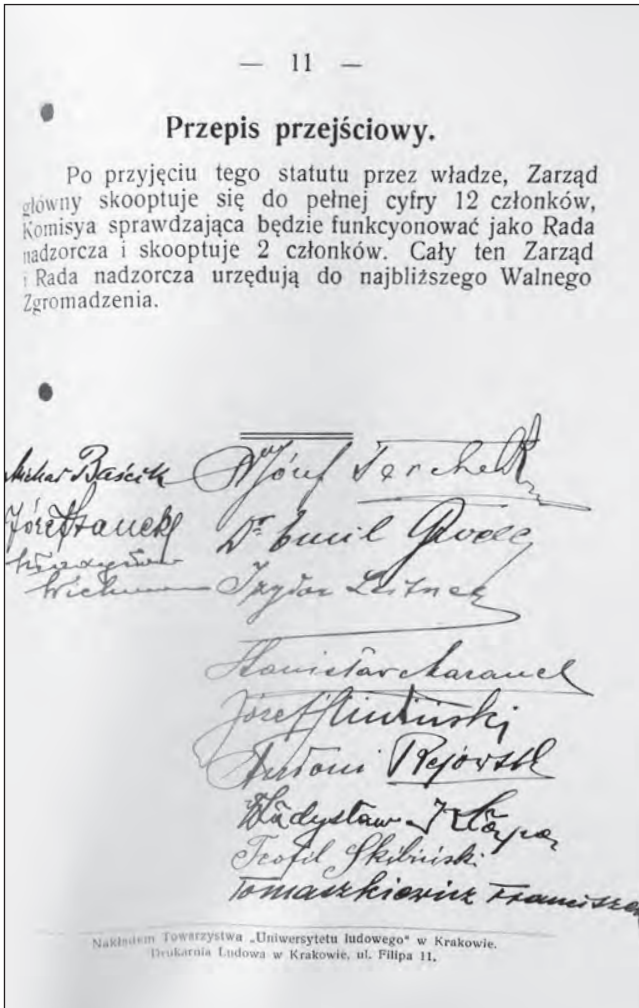 — 11 —
Przepis przejściowy.
Po przyjęciu tego statutu przez władze, Zarząd
główny skooptuje się do pełnej cyfry 12 członków,
Komisya sprawdzająca będzie funkcyonować jako Rada
nadzorcza i skooptuje 2 członków. Cały ten Zarząd
i Rada nadzorcza urzędują do najbliższego Walnego
Zgromadzenia.
Michał Baścik
Józef
Władysław
Józef
Dr Emil
Izydor Leitner
Stanisław
Józef
Antoni
Władysław
Teofil Skibiński
Tomaszkiewicz Franciszek
Nakładem Towarzystwa „Uniwersytetu ludowego" w Krakowie.
Drukarnia Ludowa w Krakowie, ul. Filipa 11.